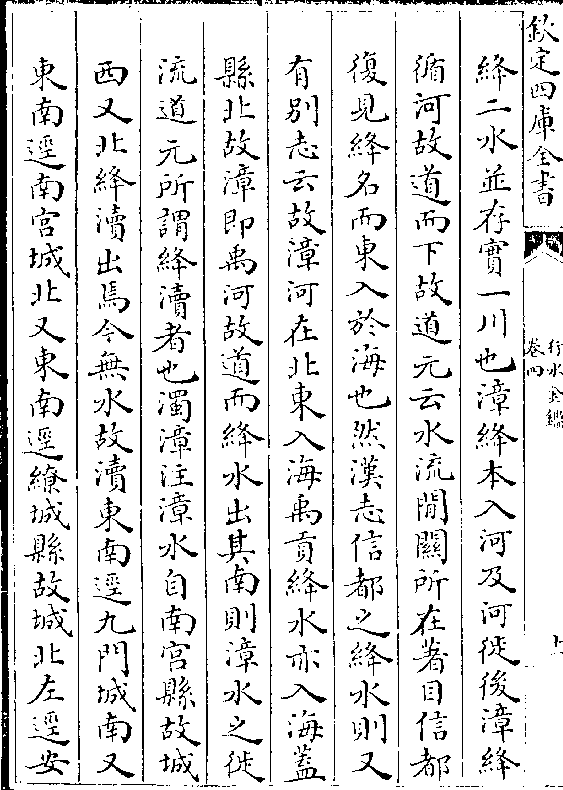 欽定四庫全書
行水金鑑
卷四
上
絳二水並存實一川也漳絳本入河及河徙後漳絳
循河故道而下故道元云水流間關所在著目信都
復見絳名而東入於海也然漢志信都之絳水則又
有别志云故漳河在北東入海禹貢絳水亦入海蓋
縣北故漳即禹河故道而絳水出其南則漳水之徙
流道元所謂絳瀆者也濁漳注漳水自南宮縣故城
西又北絳瀆出焉今無水故瀆東南逕九門城南又
東南逕南宮城北又東南逕繚城縣故城北左逕安